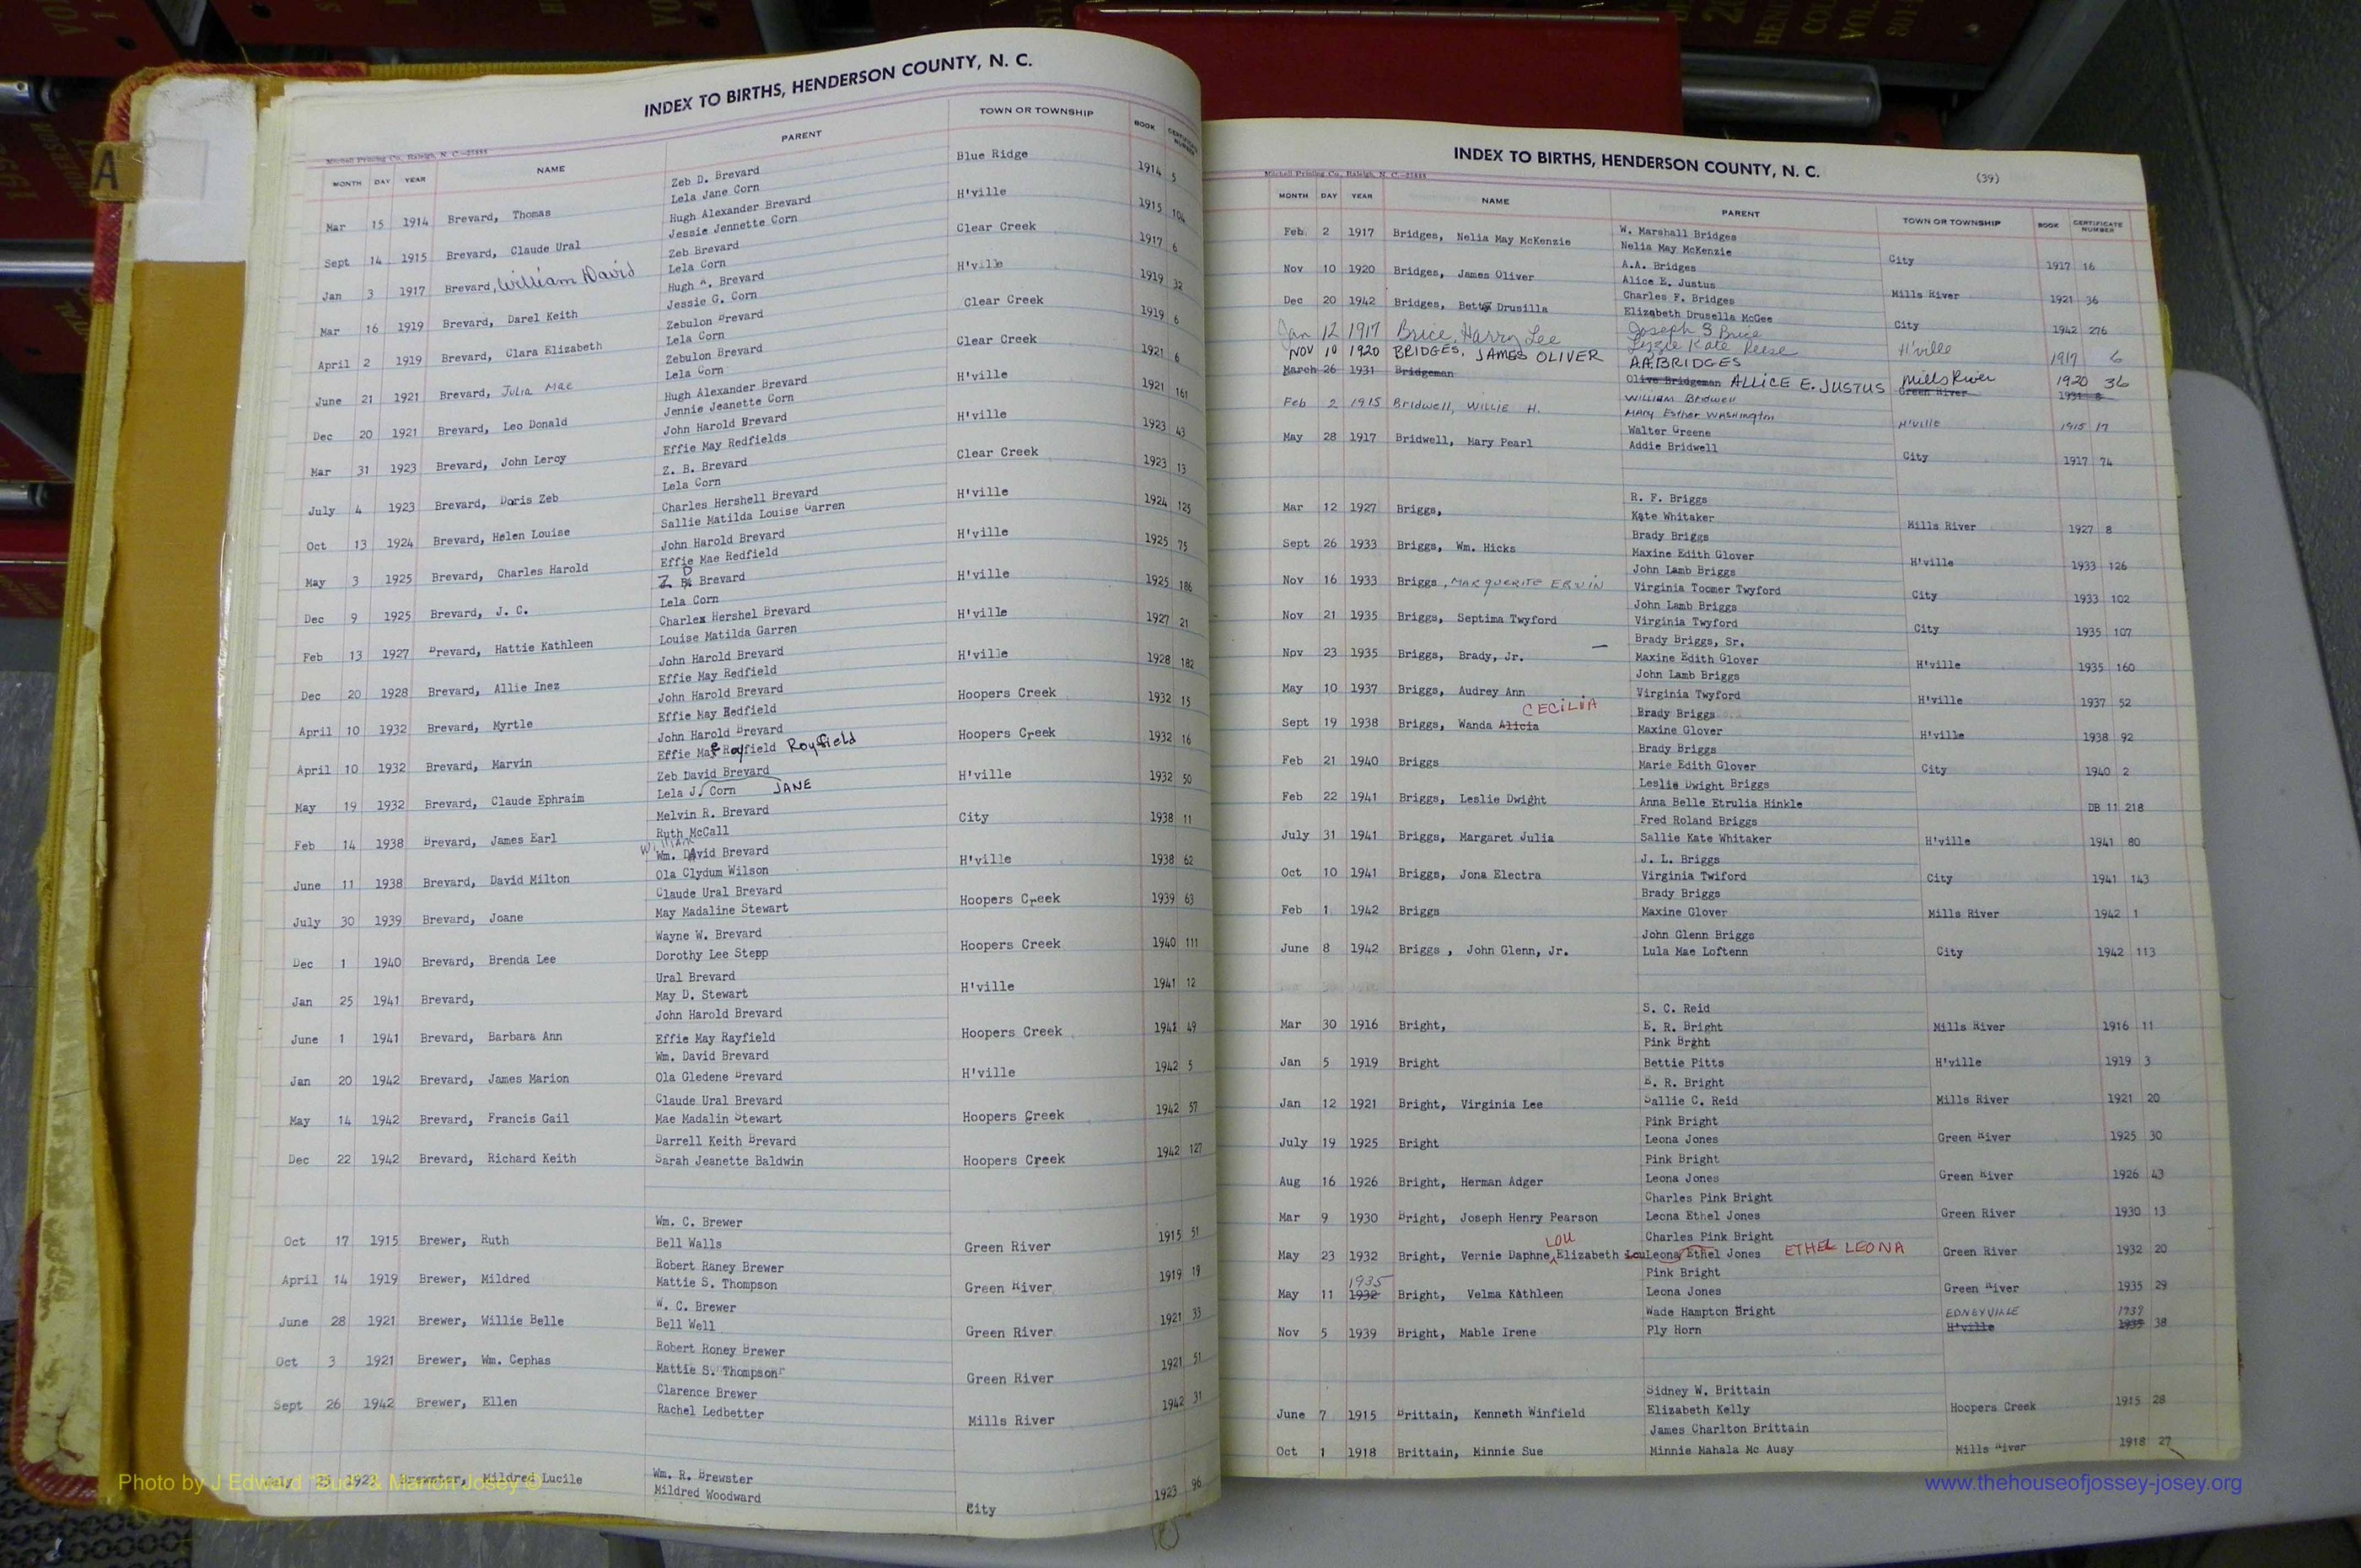 INDEX TO BIRTHS, HENDERSON COUNTY, N. C.
Mitchell Printing Co., Raleigh, N. C.—25888
MONTH DAY YEAR NAME PARENT TOWN OR TOWNSHIP BOOK CERTIFICATE NUMBER
Zeb D. Brevard
Mar 15 1914 Brevard, Thomas Lela Jane Corn Blue Ridge 1914 5
Hugh Alexander Brevard
Sept 14 1915 Brevard, Claude Ural Jessie Jennette Corn H'ville 1915 104
Zeb Brevard
Jan 3 1917 Brevard, William David Lela Corn Clear Creek 1917 6
Hugh A. Brevard
Mar 16 1919 Brevard, Darel Keith Jessie G. Corn H'ville 1919 32
Zebulon Brevard
April 2 1919 Brevard, Clara Elizabeth Lela Corn Clear Creek 1919 6
Zebulon Brevard
June 21 1921 Brevard, Julia Mae Lela Corn Clear Creek 1921 6
Hugh Alexander Brevard
Dec 20 1921 Brevard, Leo Donald Jennie Jeanette Corn H'ville 1921 161
John Harold Brevard
Mar 31 1923 Brevard, John Leroy Effie May Redfields H'ville 1923 43
Z. B. Brevard
July 4 1923 Brevard, Doris Zeb Lela Corn Clear Creek 1923 13
Charles Hershell Brevard
Oct 13 1924 Brevard, Helen Louise Sallie Matilda Louise Garren H'ville 1924 125
John Harold Brevard
May 3 1925 Brevard, Charles Harold Effie Mae Redfield H'ville 1925 75
Z. D Brevard
Dec 9 1925 Brevard, J. C. Lela Corn H'ville 1925 186
Charlex Hershel Brevard
Feb 13 1927 Brevard, Hattie Kathleen Louise Matilda Garren H'ville 1927 21
John Harold Brevard
Dec 20 1928 Brevard, Allie Inez Effie May Redfield H'ville 1928 182
John Harold Brevard
April 10 1932 Brevard, Myrtle Effie May Redfield Hoopers Creek 1932 15
John Harold Brevard
April 10 1932 Brevard, Marvin Effie Mae Rayfield Royfield Hoopers Creek 1932 16
Zeb David Brevard
May 19 1932 Brevard, Claude Ephraim Lela J. Corn JANE H'ville 1932 50
Melvin R. Brevard
Feb 14 1938 Brevard, James Earl Ruth McCall City 1938 11
Wm. David Brevard
June 11 1938 Brevard, David Milton Ola Clydum Wilson H'ville 1938 62
Claude Ural Brevard
July 30 1939 Brevard, Joane May Madaline Stewart Hoopers Creek 1939 63
Wayne W. Brevard
Dec 1 1940 Brevard, Brenda Lee Dorothy Lee Stepp Hoopers Creek 1940 111
Ural Brevard
Jan 25 1941 Brevard, May D. Stewart H'ville 1941 12
John Harold Brevard
June 1 1941 Brevard, Barbara Ann Effie May Rayfield Hoopers Creek 1941 49
Wm. David Brevard
Jan 20 1942 Brevard, James Marion Ola Gledene Brevard H'ville 1942 5
Claude Ural Brevard
May 14 1942 Brevard, Francis Gail Mae Madalin Stewart Hoopers Creek 1942 57
Darrell Keith Brevard
Dec 22 1942 Brevard, Richard Keith Sarah Jeanette Baldwin Hoopers Creek 1942 127
Wm. C. Brewer
Oct 17 1915 Brewer, Ruth Bell Walls Green River 1915 51
Robert Raney Brewer
April 14 1919 Brewer, Mildred Mattie S. Thompson Green River 1919 19
W. C. Brewer
June 28 1921 Brewer, Willie Belle Bell Well Green River 1921 33
Robert Roney Brewer
Oct 3 1921 Brewer, Wm. Cephas Mattie S. Thompson Green River 1921 51
Clarence Brewer
Sept 26 1942 Brewer, Ellen Rachel Ledbetter Mills River 1942 31
Wm. R. Brewster
Brewster, Mildred Lucile Mildred Woodward City 1923 96
Photo by J Edward "Bud" & Marion Josey ©
INDEX TO BIRTHS, HENDERSON COUNTY, N. C. (39)
Mitchell Printing Co., Raleigh, N. C.—25888
MONTH DAY YEAR NAME PARENT TOWN OR TOWNSHIP BOOK CERTIFICATE NUMBER
W. Marshall Bridges
Feb 2 1917 Bridges, Nelia May McKenzie Nelia May McKenzie City 1917 16
A.A. Bridges
Nov 10 1920 Bridges, James Oliver Alice E. Justus Mills River 1921 36
Charles F. Bridges
Dec 20 1942 Bridges, Betty Drusilla Elizabeth Drusella McGee City 1942 276
Joseph S Brice
Jan 12 1917 Brice, Harry Lee Lizzie Kate Reese H'ville 1917 6
NOV 10 1920 BRIDGES, JAMES OLIVER A.A. BRIDGES
March 26 1931 Bridgeman Olive Bridgeman ALLICE E. JUSTUS Mills River 1920 36
Green River 1931 8
WILLIAM Bridwell
Feb 2 1915 Bridwell, WILLIE H. MARY Esther WASHington H'ville 1915 17
Walter Greene
May 28 1917 Bridwell, Mary Pearl Addie Bridwell City 1917 74
R. F. Briggs
Mar 12 1927 Briggs, Kate Whitaker Mills River 1927 8
Brady Briggs
Sept 26 1933 Briggs, Wm. Hicks Maxine Edith Glover H'ville 1933 126
John Lamb Briggs
Nov 16 1933 Briggs, MARQUERITE ERVIN Virginia Toomer Twyford City 1933 102
John Lamb Briggs
Nov 21 1935 Briggs, Septima Twyford Virginia Twyford City 1935 107
Brady Briggs, Sr.
Nov 23 1935 Briggs, Brady, Jr. Maxine Edith Glover H'ville 1935 160
John Lamb Briggs
May 10 1937 Briggs, Audrey Ann Virginia Twyford H'ville 1937 52
CECILIA Brady Briggs
Sept 19 1938 Briggs, Wanda Alicia Maxine Glover H'ville 1938 92
Brady Briggs
Feb 21 1940 Briggs Marie Edith Glover City 1940 2
Leslie Dwight Briggs
Feb 22 1941 Briggs, Leslie Dwight Anna Belle Etrulia Hinkle DB 11 218
Fred Roland Briggs
July 31 1941 Briggs, Margaret Julia Sallie Kate Whitaker H'ville 1941 80
J. L. Briggs
Oct 10 1941 Briggs, Jona Electra Virginia Twiford City 1941 143
Brady Briggs
Feb 1 1942 Briggs Maxine Glover Mills River 1942 1
John Glenn Briggs
June 8 1942 Briggs , John Glenn, Jr. Lula Mae Loftenn City 1942 113
S. C. Reid
Mar 30 1916 Bright, E. R. Bright Mills River 1916 11
Pink Brght
Jan 5 1919 Bright Bettie Pitts H'ville 1919 3
E. R. Bright
Jan 12 1921 Bright, Virginia Lee Sallie C. Reid Mills River 1921 20
Pink Bright
July 19 1925 Bright Leona Jones Green River 1925 30
Pink Bright
Aug 16 1926 Bright, Herman Adger Leona Jones Green River 1926 43
Charles Pink Bright
Mar 9 1930 Bright, Joseph Henry Pearson Leona Ethel Jones Green River 1930 13
LOU Charles Pink Bright
May 23 1932 Bright, Vernie Daphne Elizabeth Lou Leona Ethel Jones ETHEL LEONA Green River 1932 20
1935 Pink Bright
May 11 1932 Bright, Velma Kathleen Leona Jones Green River 1935 29
Wade Hampton Bright EDNEYVILLE 1939
Nov 5 1939 Bright, Mable Irene Ply Horn H'ville 1935 38
Sidney W. Brittain
June 7 1915 Brittain, Kenneth Winfield Elizabeth Kelly Hoopers Creek 1915 28
James Charlton Brittain
Oct 1 1918 Brittain, Minnie Sue Minnie Mahala Mc Ausy Mills River 1918 27
www.thehouseofjossey-josey.org
A